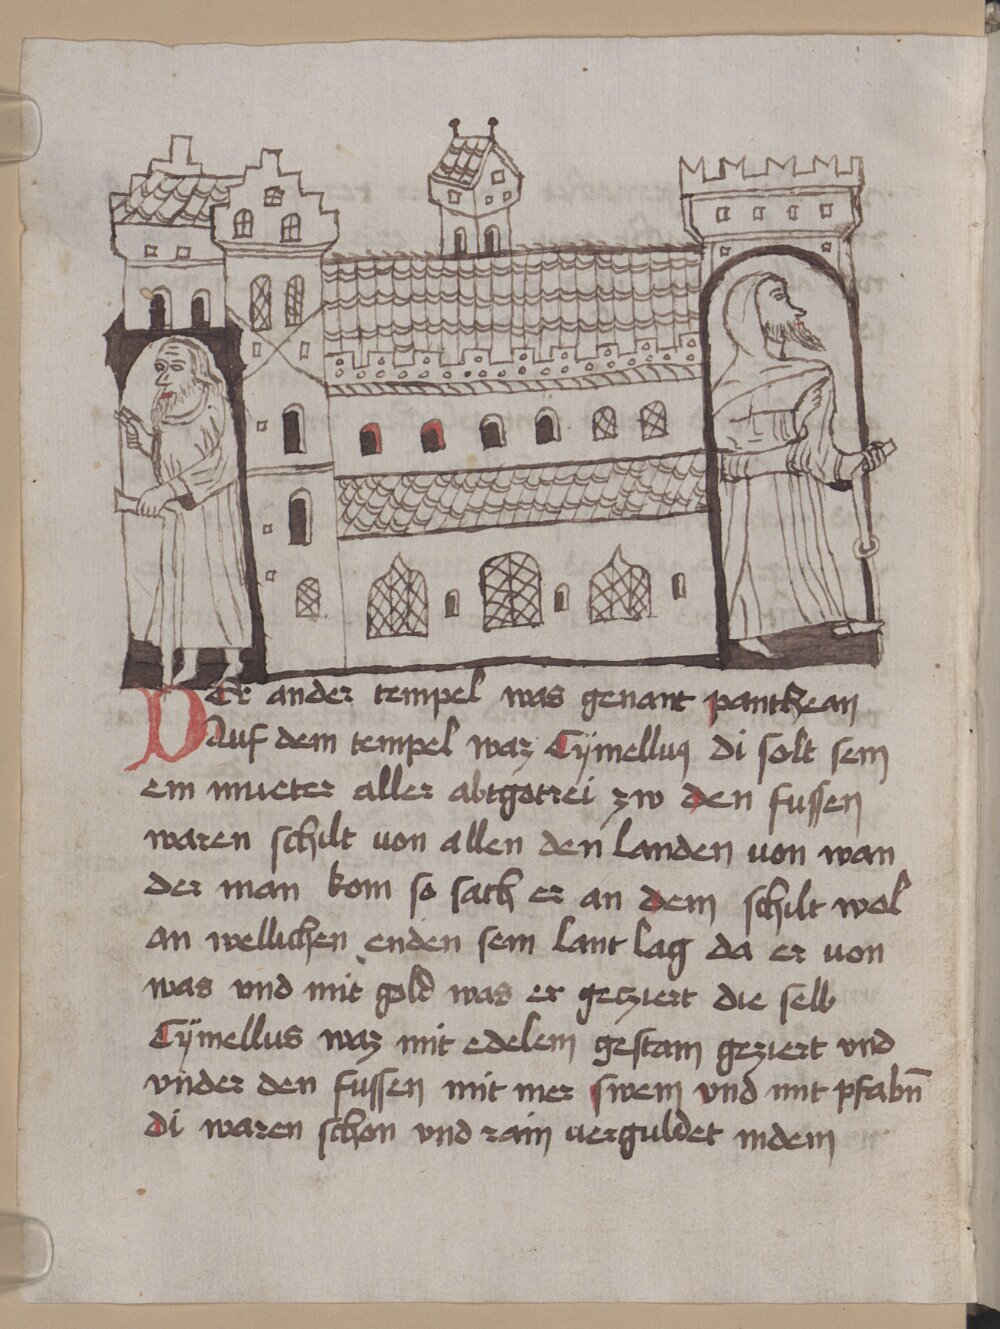 DEr ander tempel was genant panthean
Auf dem tempel waz Cÿmellus di solt sein
ein mueter aller abtgotrei zw den fussen
waren schilt von allen den landen von wan
der man kom so sach er an dem schilt wol
an wellichen enden sein lant lag da er von
was vnd mit gold was er geziert die selb
Cÿmellus waz mit edelem gestain geziert vnd
vnder den fussen mit mer swein vnd mit pfabn̄
di waren schon vnd rain verguldet indem